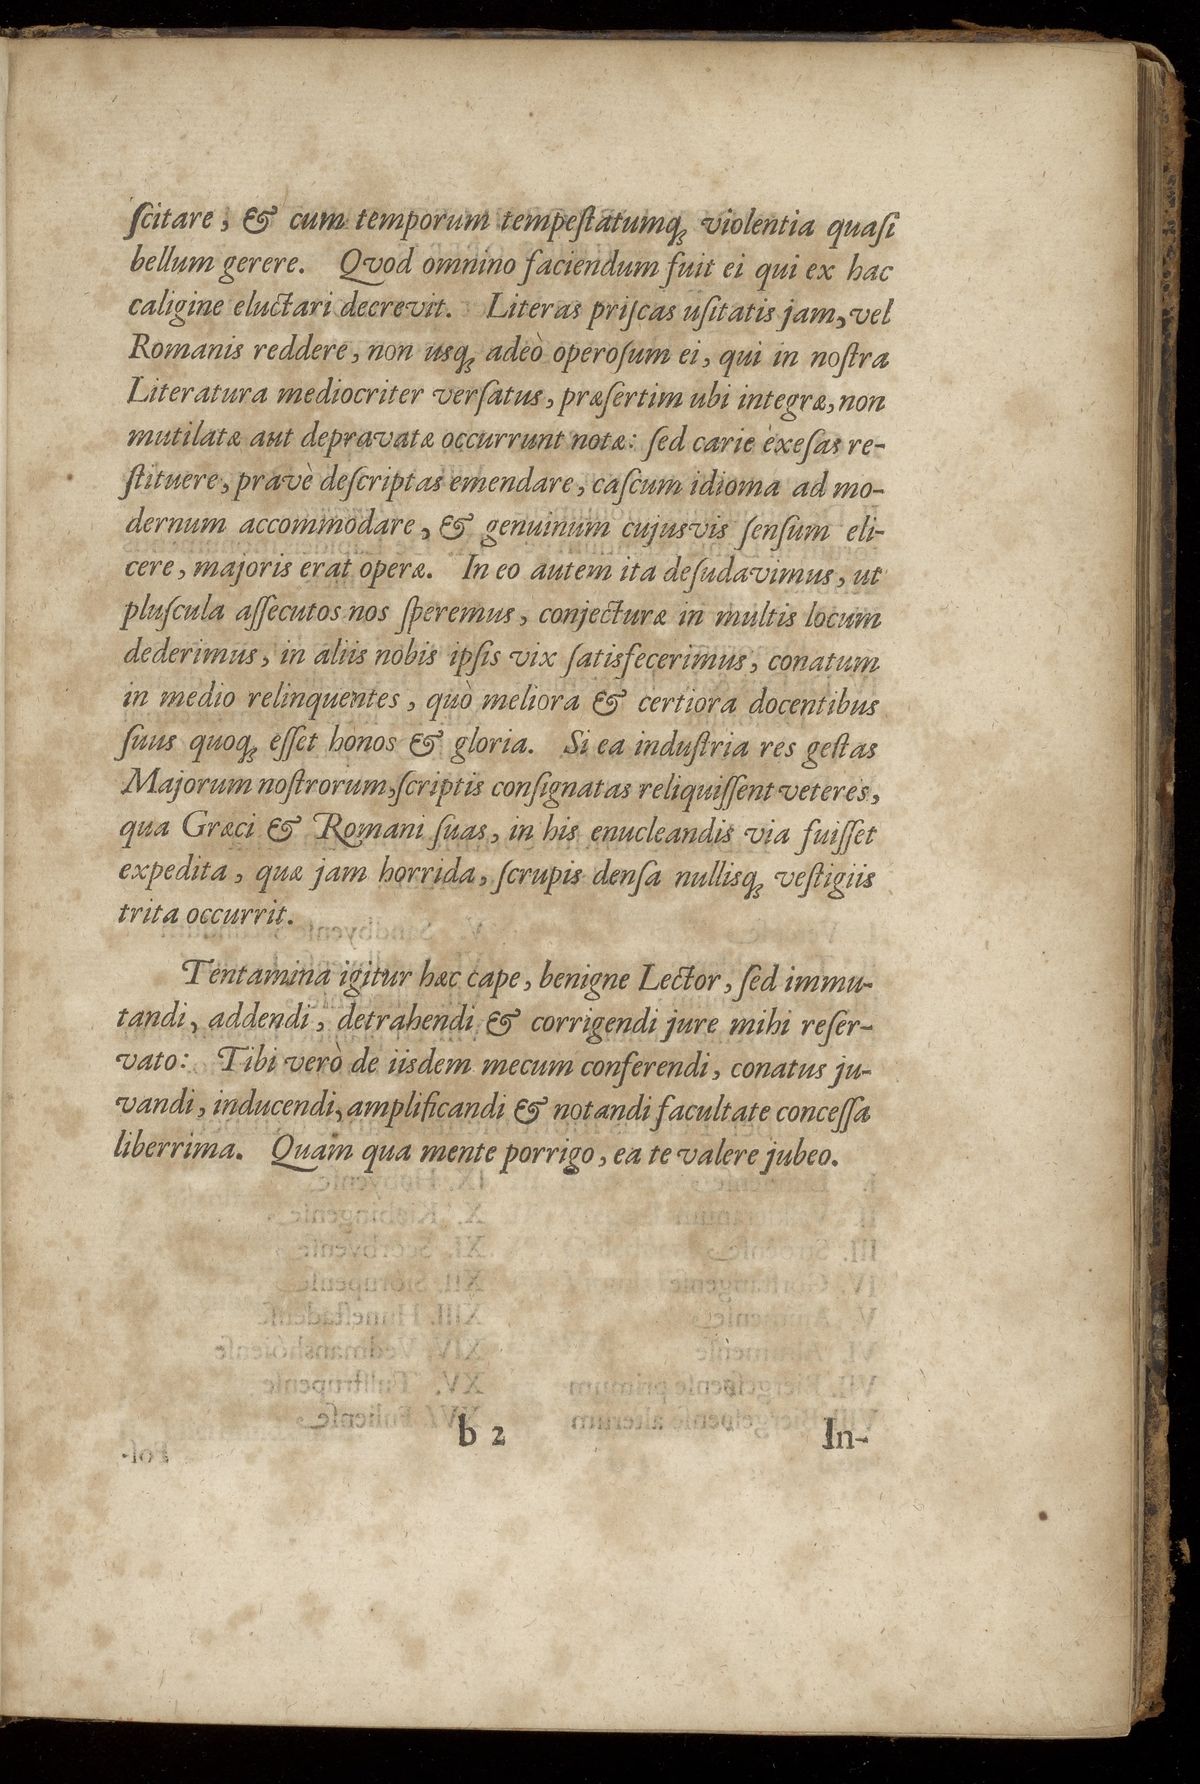 ſcitare, & cum temporum tempeſtatumqꝫ violentia quaſi
bellum gerere. Qvod omnino faciendum fuit ei qui ex hac
caligine eluctari decrevit. Literas priſcas uſitatis jam, vel
Romanis reddere, non usqꝫ adeò operoſum ei, qui in noſtra
Literatura mediocriter verſatus, præſertim ubi integræ, non
mutilatæ aut depravatæ occurrunt notæ: ſed carie exeſas re-
ſtituere, pravè deſcriptas emendare, caſcum idioma ad mo-
dernum accommodare, & genuinum cujusvis ſenſum eli-
cere, majoris erat operæ. In eo autem ita deſudavimus, ut
pluſcula aſſecutos nos ſperemus, conjecturæ in multis locum
dederimus, in aliis nobis ipſis vix ſatisfecerimus, conatum
in medio relinquentes, quò meliora & certiora docentibus
ſuus quoqꝫ eſſet honos & gloria. Si ea induſtria res geſtas
Majorum noſtrorum, ſcriptis conſignatas reliquiſſent veteres,
qua Græci & Romani ſuas, in his enucleandis via fuiſſet
expedita, quæ jam horrida, ſcrupis denſa nullisqꝫ veſtigiis
trita occurrit.
Tentamina igitur hæc cape, benigne Lector, ſed immu-
tandi, addendi, detrahendi & corrigendi jure mihi reſer-
vato: Tibi verò de iisdem mecum conferendi, conatus ju-
vandi, inducendi, amplificandi & notandi facultate conceſſa
liberrima. Quam qua mente porrigo, ea te valere jubeo.
b 2 In-